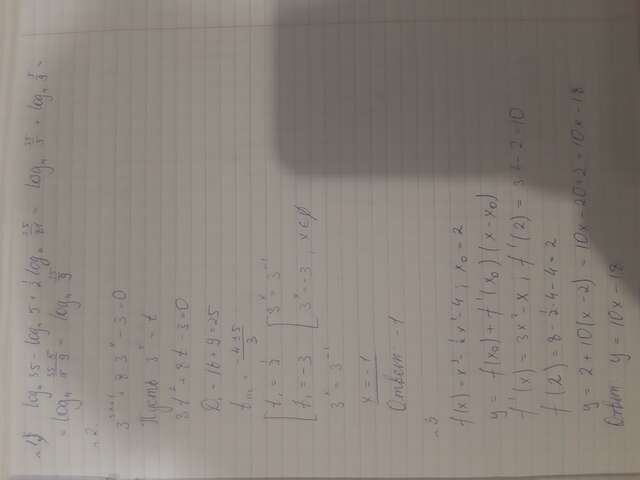 log₄ 35 - log₄ 5 + ½ log₄ 25/81 = log₄ 35/5 + log₄ 5/9 =
n 2
+ 8 · 3ˣ - 3 = 0
Пусть 3ˣ = t
3t² + 8t - 3 = 0
D₁ = 16 + 9 = 25
t₁,₂ = (-4 ± 5)/3
[t₁ = 1/3 [3ˣ = 3⁻¹
[t₂ = -3 [3ˣ = -3, x ∈ ∅
3ˣ = 3⁻¹
x = -1
Ответ -1
n 3
f(x) = x³ - ½x² - 4; x₀ = 2
y = f(x₀) + f'(x₀)(x - x₀)
f'(x) = 3x² - x; f'(2) = 3·4 - 2 = 10
f(2) = 8 - ½·4 - 4 = 2
y = 2 + 10(x - 2) = 10x - 20 + 2 = 10x - 18
Ответ y = 10x - 18